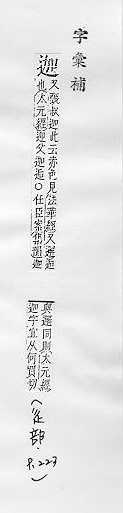 字彙補
迦
又張叔迦此云赤色見法華經又邂逅
也太元經迦父迦逅○任臣案集韻迦
與邂同則太元經
迦字宜从何買切
(辵部
P.223)